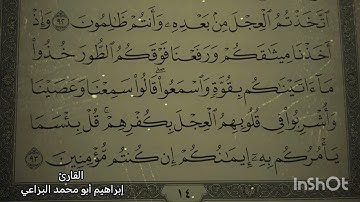 ٱتَّخَذْتُمُ ٱلْعِجْلَ مِنۢ بَعْدِهِۦ وَأَنتُمْ ظَٰلِمُونَ ٩٢ وَإِذْ
أَخَذْنَا مِيثَٰقَكُمْ وَرَفَعْنَا فَوْقَكُمُ ٱلطُّورَ خُذُوا۟
مَآ ءَاتَيْنَٰكُم بِقُوَّةٍ وَٱسْمَعُوا۟ ۖ قَالُوا۟ سَمِعْنَا وَعَصَيْنَا
وَأُشْرِبُوا۟ فِى قُلُوبِهِمُ ٱلْعِجْلَ بِكُفْرِهِمْ ۚ قُلْ بِئْسَمَا
يَأْمُرُكُم بِهِۦٓ إِيمَٰنُكُمْ إِن كُنتُم مُّؤْمِنِينَ ٩٣
القارئ
إبراهيم أبو محمد البزاعي
١٤
InShOt